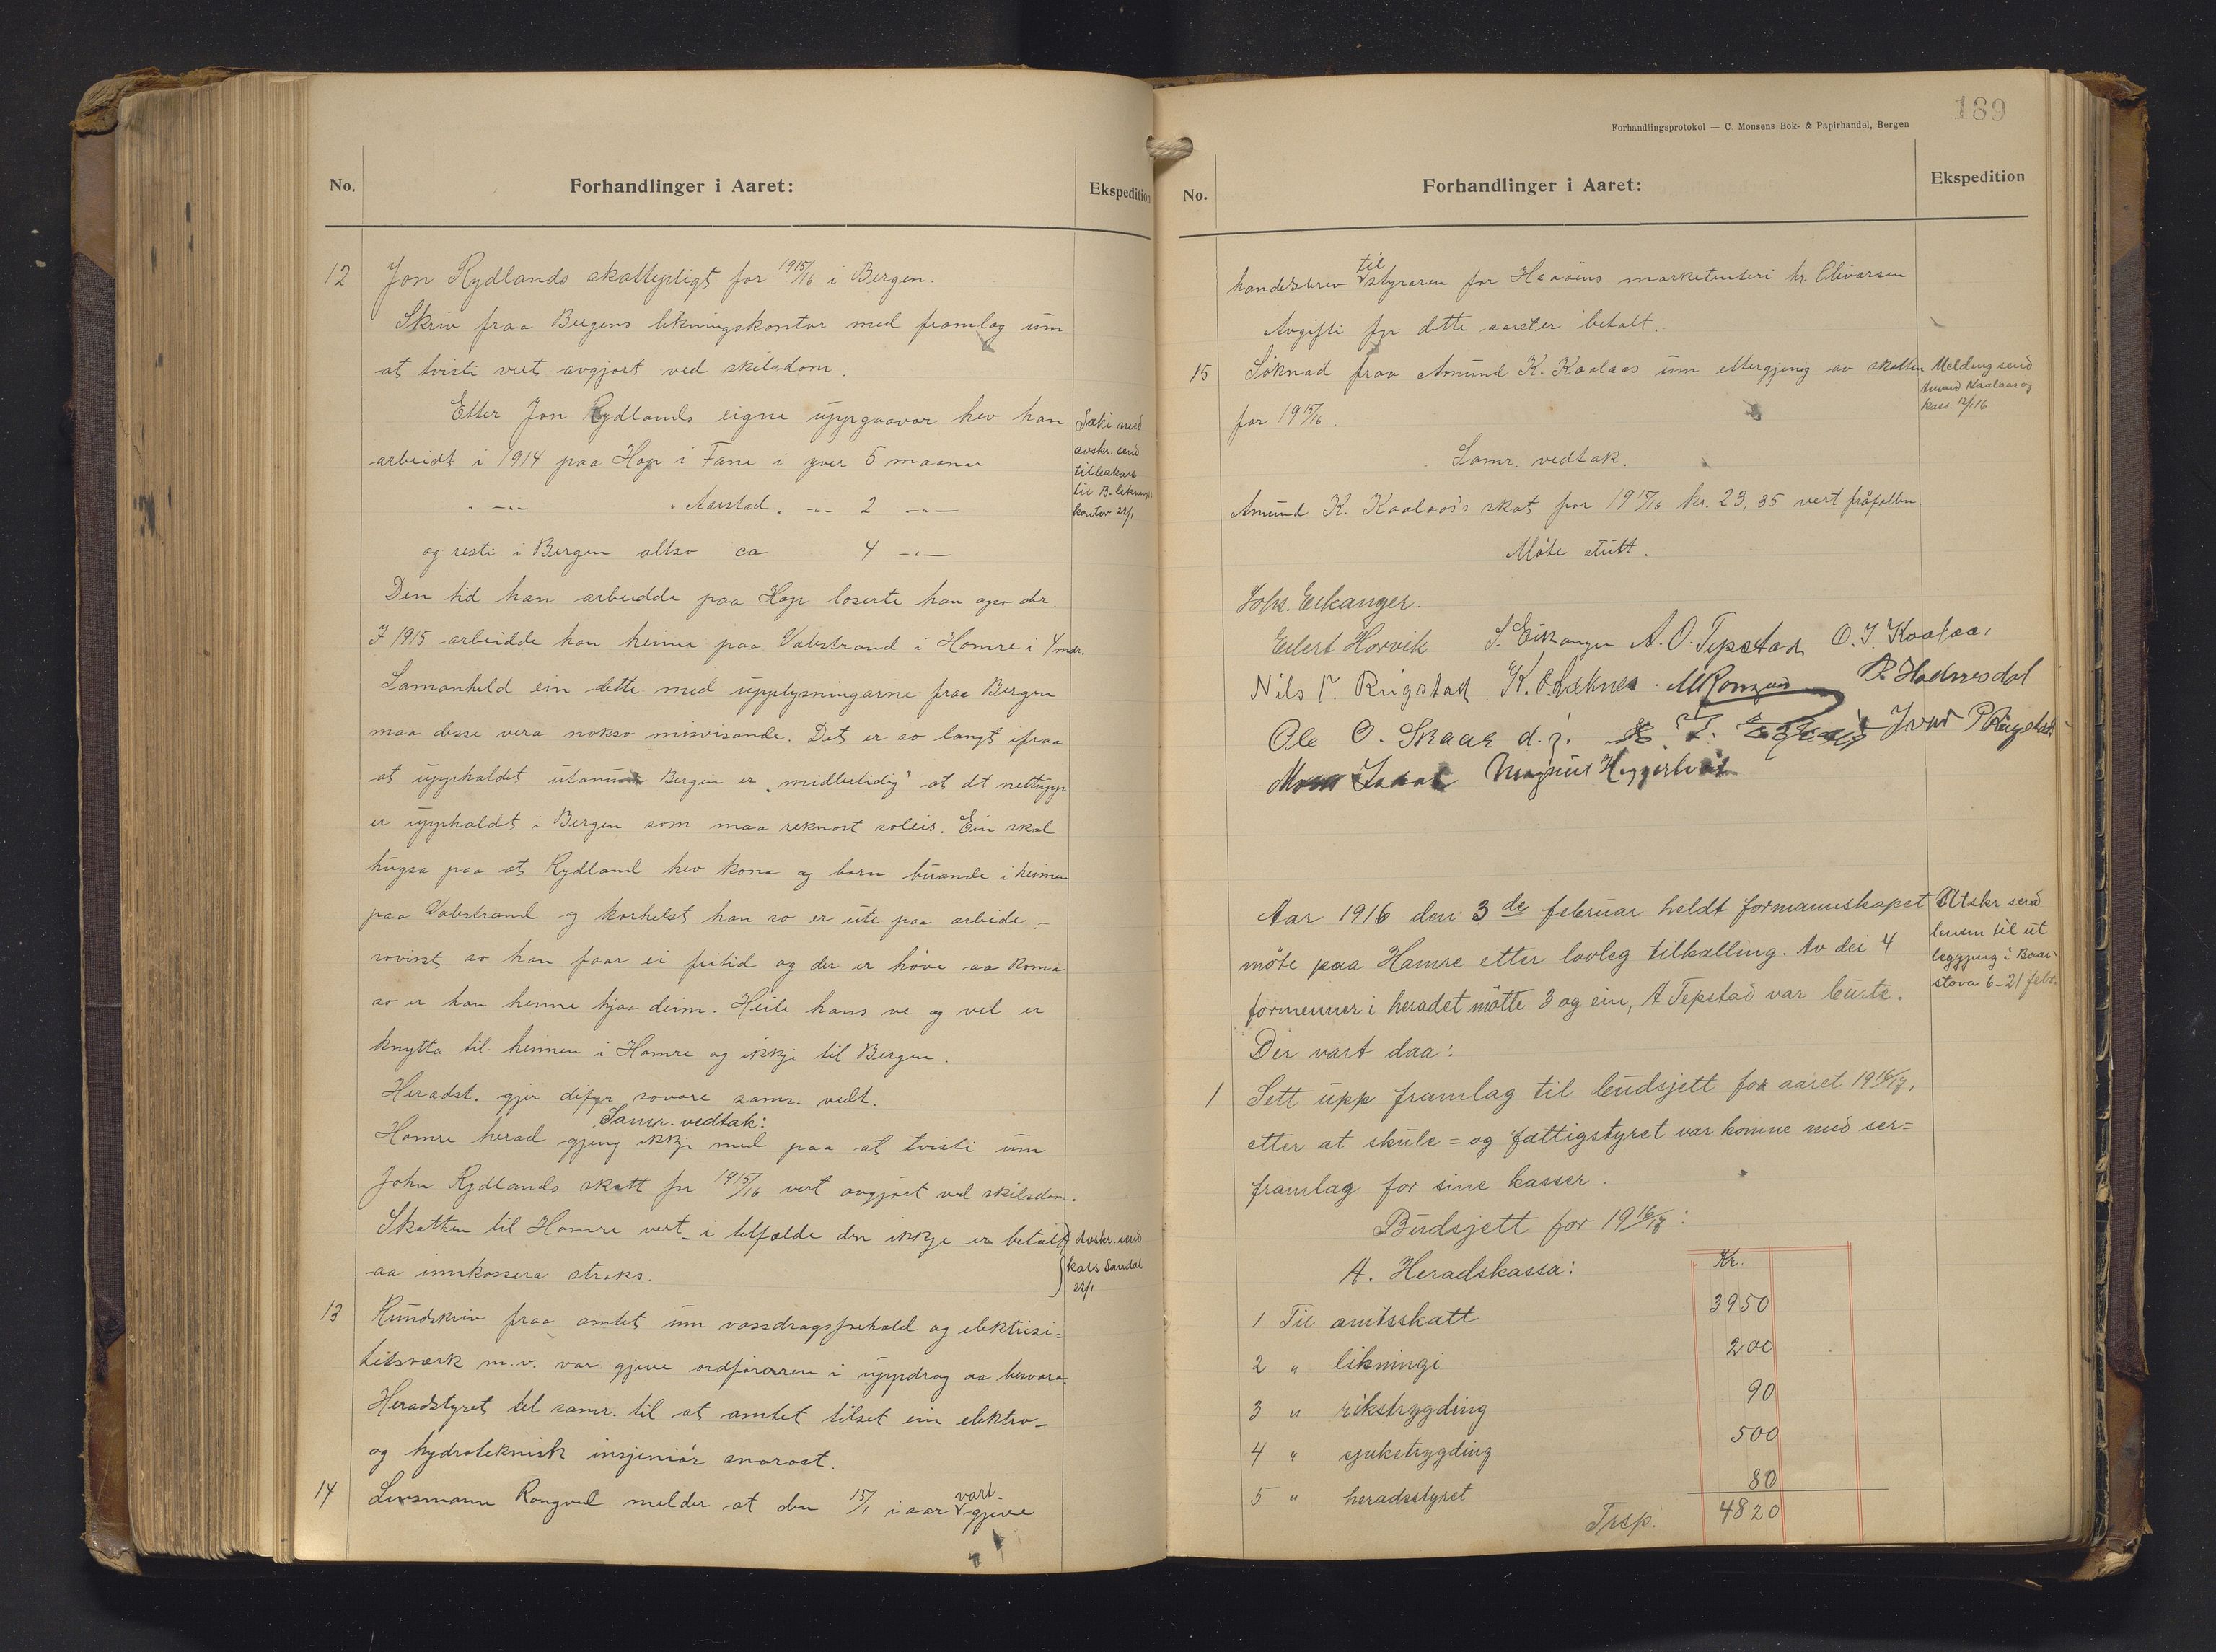 No.
Forhandlinger i Aaret:
Ekspedition
12 Jon Rydlands skattepligt for 1915/16 i Bergen.
Skriv fraa Bergens likningskontor med framlag um
at tvisti vert avgjort ved skilsdom.
Etter Jon Rydlands eigne uppgaavor hev han
arbeidt i 1914 paa Hop i Fane i yver 5 maanar
" -"- " Aarstad " -"- 2 -"-
og resti i Bergen altso ca 4 -"-
Saki med
avskr. send
tilbakars
til B. liknings-
kontor 22/1
Den tid han arbeidde paa Hop loserte han ogso der.
I 1915 arbeidde han heime paa Vabstrand i Hamre i 4 mdr.
Samanheld ein dette med upplysningarne fraa Bergen
maa desse vera nokso misvisande. Det er so langt ifraa
at uppholdet utanum Bergen er "midlertidig" at dt nettupp
er uppholdet i Bergen som maa reknast soleis. Ein skal
hugsa paa at Rydland hev kona og born buande i heimen
paa Vabstrand og korhelst han so er ute paa arbeide -
sovisst so han faar ei fritid og der er høve aa koma
so er han heime hjaa deim. Heile hans ve og vel er
knytta til heimen i Hamre og ikkje til Bergen.
Heradst. gjer difyr sovore samr. vedt.
Samr. vedtak:
Hamre herad gjeng ikkje med paa at tvisti um
John Rydlands skatt for 1915/16 vert avgjort ved skilsdom.
Skatten til Hamre vert i tilfælde den ikkje er betalt
aa innkassera straks.
Avskr. send
kass Sandal
22/1
13 Rundskriv fraa amtet um vassdragsfrehold og elektrisi=
tetsværk m.v. var gjeve ordføraren i uppdrag aa besvara.
Heradstyret tel samr. til at amtet tilset ein elektro-
og hydroteknisk insjeniør snarast.
14 Lensmann Rongved melder at den 15/1 i aar vart gjeve
189
Forhandlingsprotokol — C. Monsens Bok- & Papirhandel, Bergen
No.
Forhandlinger i Aaret:
Ekspedition
handelsbrev til styraren for Haaøens marketenteri hr. Olivarsen
Avgifti fyr dette aaret er betalt.
15 Søknad fraa Amund K. Kaalaas um ettergjeving av skatten
for 1915/16.
Melding send
Amund Kaalaas og
kass. 12/1 16
Samr. vedtak.
Amund K. Kaalaas's skat for 1915/16 kr. 23,35 vert fråfallen.
Møte slutt.
Johs. Eikanger.
Eilert Horvik S. Eikanger A. O. Tepstad O. J. Kaalaas
Nils P. Rigstad K. O. Læknes MRongved P. Hodnesdal
Ole O. Skaar d.y. Ivar P Rigstad
Mons Isdal Magnus Heggertveit
Aar 1916 den 3de februar heldt formannskapet
møte paa Hamre etter lovleg tilkalling. Av dei 4
formenner i heradet møtte 3 og ein, A Tepstad var burte.
Der vart daa:
Utskr send
lensm til ut
leggjing i Baar-
stova 6-21 febr.
1 Sett upp framlag til budsjett for aaret 1916/17,
etter at skule= og fattigstyret var komne med ser=
framlag for sine kasser.
Budsjett for 1916/17:
A. Heradskassa: Kr.
1 Til amtsskatt 3950
2 " likningi 200
3 " rikstrygding 90
4 " sjuketrygding 500
5 " heradsstyret 80
Trsp. 4820